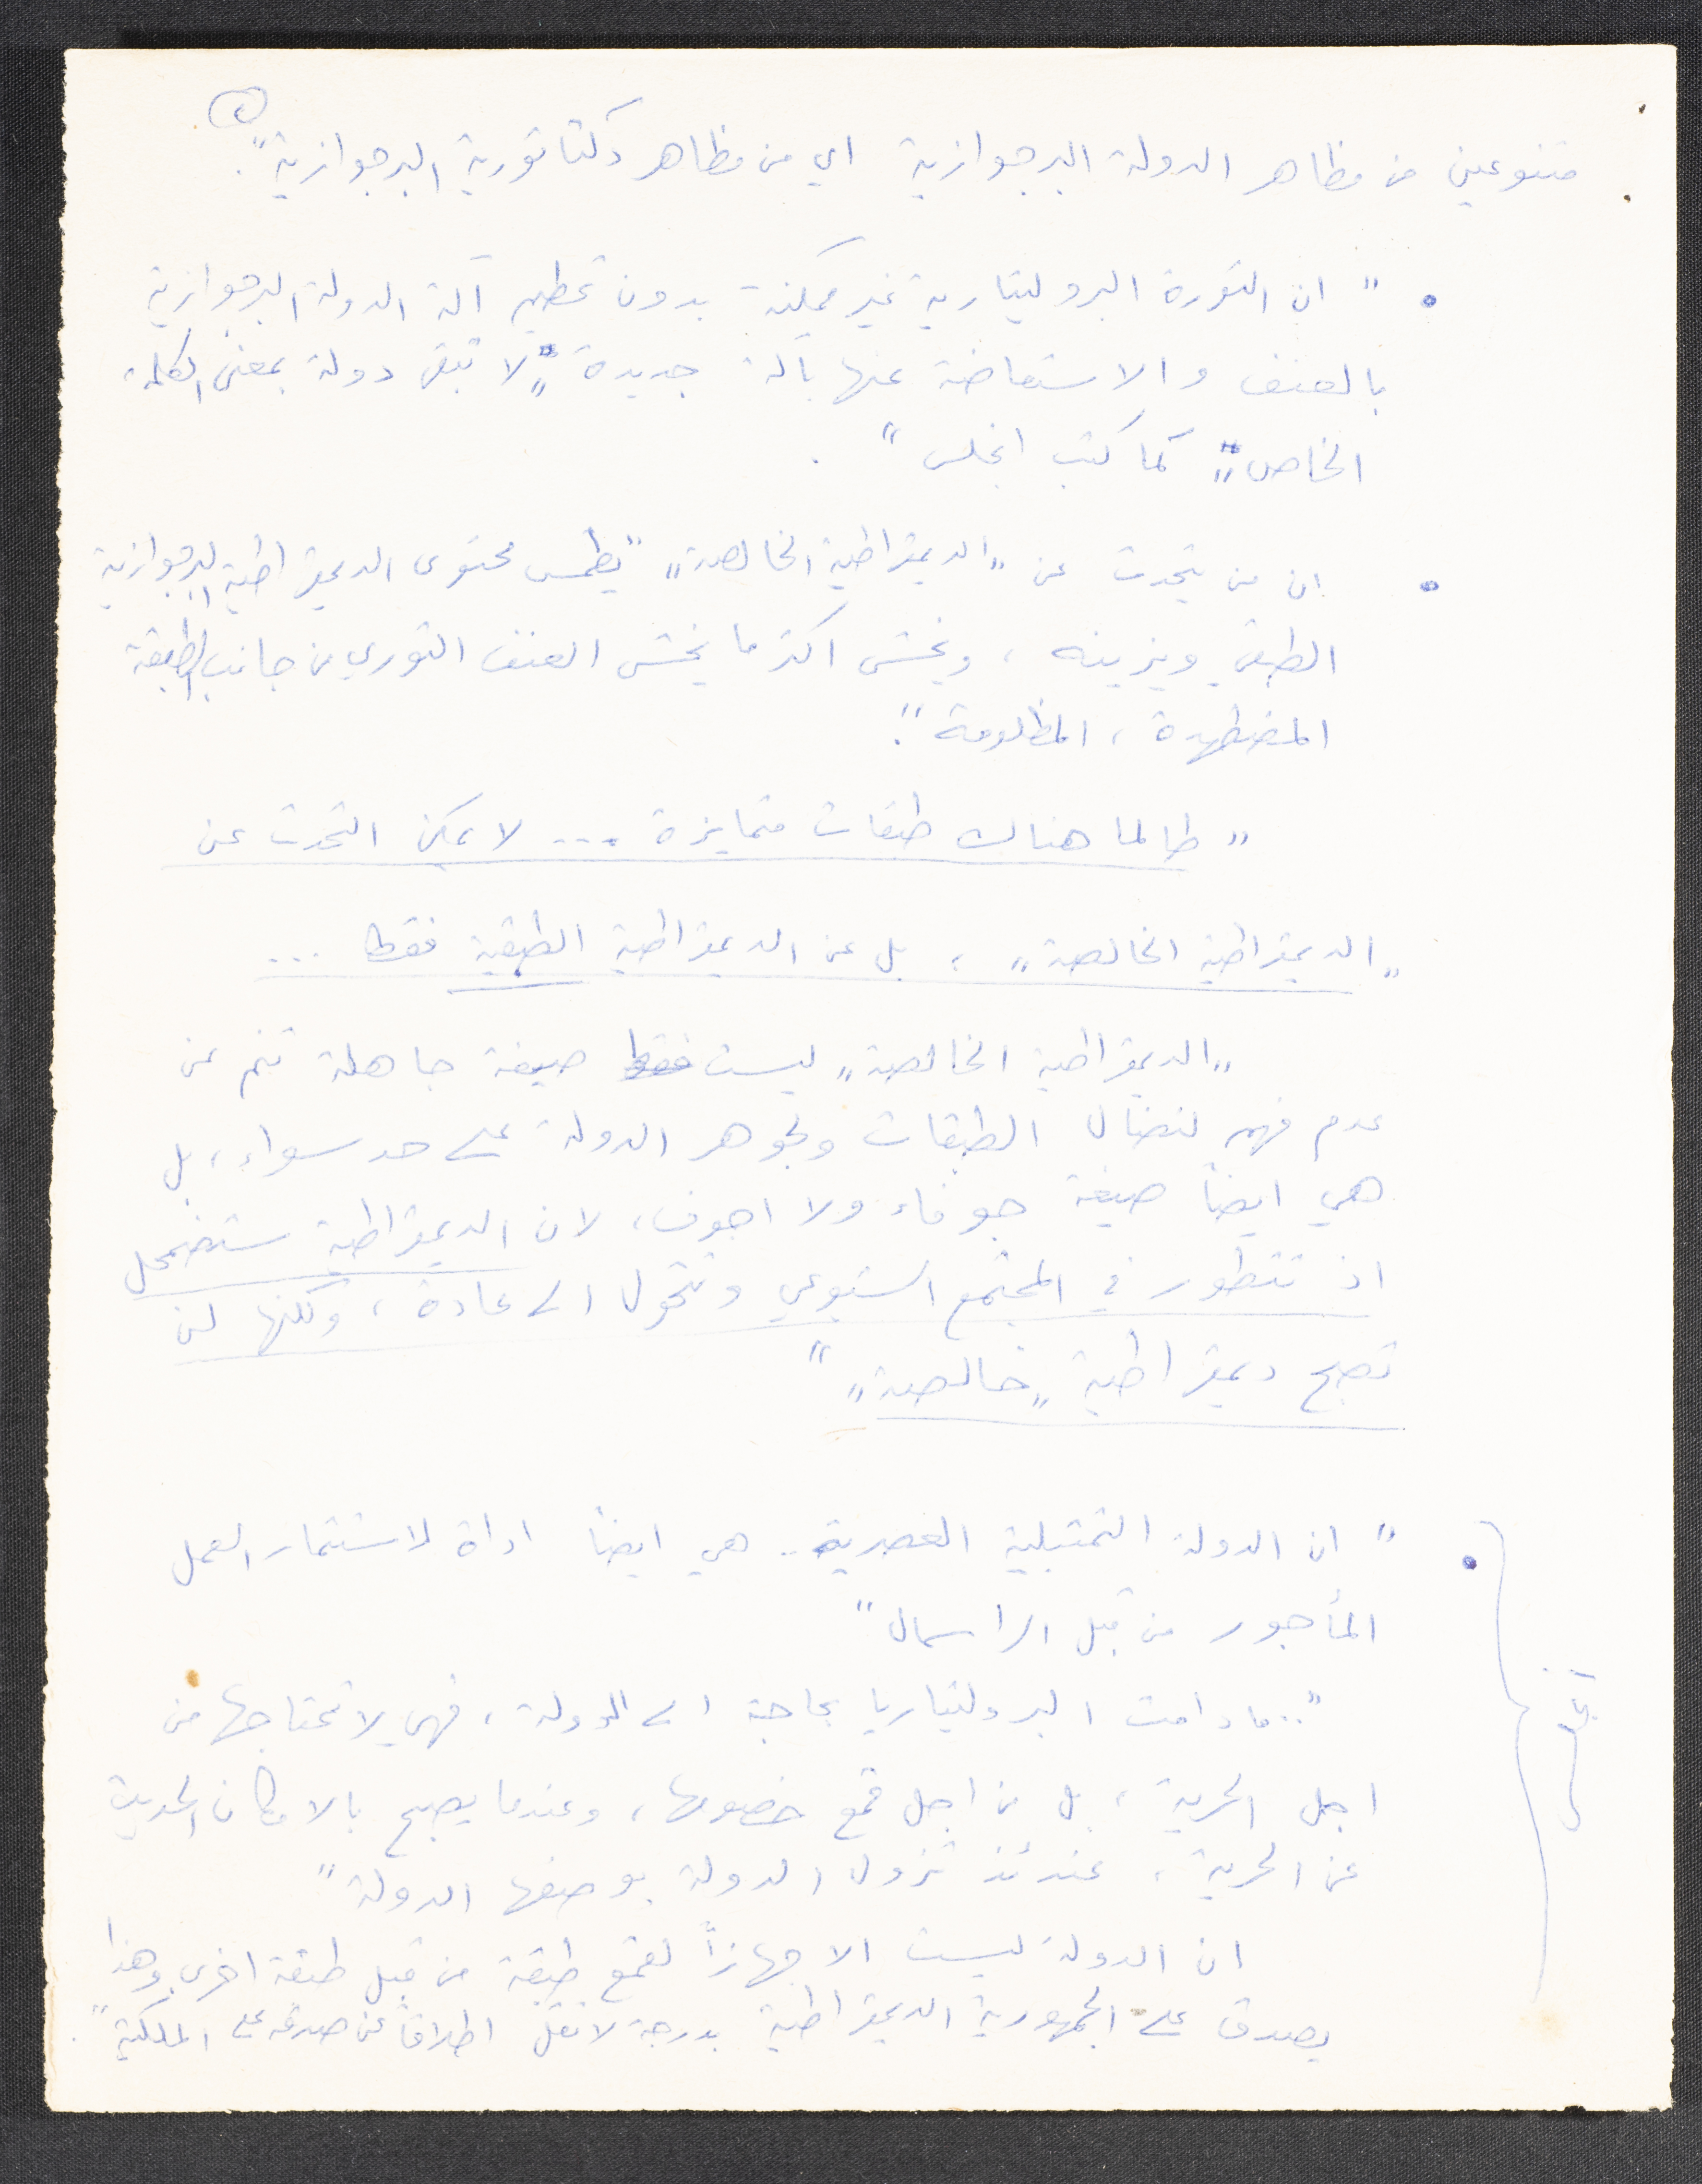 ٥
متنوعين من مظاهر الدولة البرجوازية اي من مظاهر دكتاتورية البرجوازية".
• " ان الثورة البروليتارية غير ممكنة بدون تحطيم آلة الدولة البرجوازية
بالعنف والاستعاضة عنها بآلة جديدة "لا تبقى دولة بمعنى الكلمة
الخاص" كما كتب انجلس".
• ان من يتحدث عن "الديمقراطية الخالصة" "يطمس محتوى الديمقراطية البرجوازية
الطبقي ويزينه، ويخشى اكثر ما يخشى العنف الثوري من جانب الطبقة
المضطهدة، المظلومة".
" طالما هناك طبقات متمايزة ... لا يمكن التحدث عن
"الديمقراطية الخالصة"، بل عن الديمقراطية الطبقية فقط ...
"الديمقراطية الخالصة" ليست فقط صيغة جاهلة تنم عن
عدم فهم لنضال الطبقات ولجوهر الدولة على حد سواء، بل
هي ايضاً صيغة جوفاء ولا اجوف، لان الديمقراطية ستضمحل
اذ تتطور في المجتمع الشيوعي وتتحول الى عادة، ولكنها لن
تصبح ديمقراطية "خالصة""
• " ان الدولة التمثيلية العصرية.. هي ايضاً اداة لاستثمار العمل
المأجور من قبل الراسمال"
"..ما دامت البروليتاريا بحاجة الى الدولة، فهي لا تحتاجها من
اجل الحرية، بل من اجل قمع خصومها، وعندما يصبح بالامكان الحديث
عن الحرية، عندئذ تزول الدولة بوصفها الدولة"
ان الدولة ليست الا جهازاً لقمع طبقة من قبل طبقة اخرى وهذا
يصدق على الجمهورية الديمقراطية بدرجة لا تقل اطلاقاً عن صدقه على الملكية".